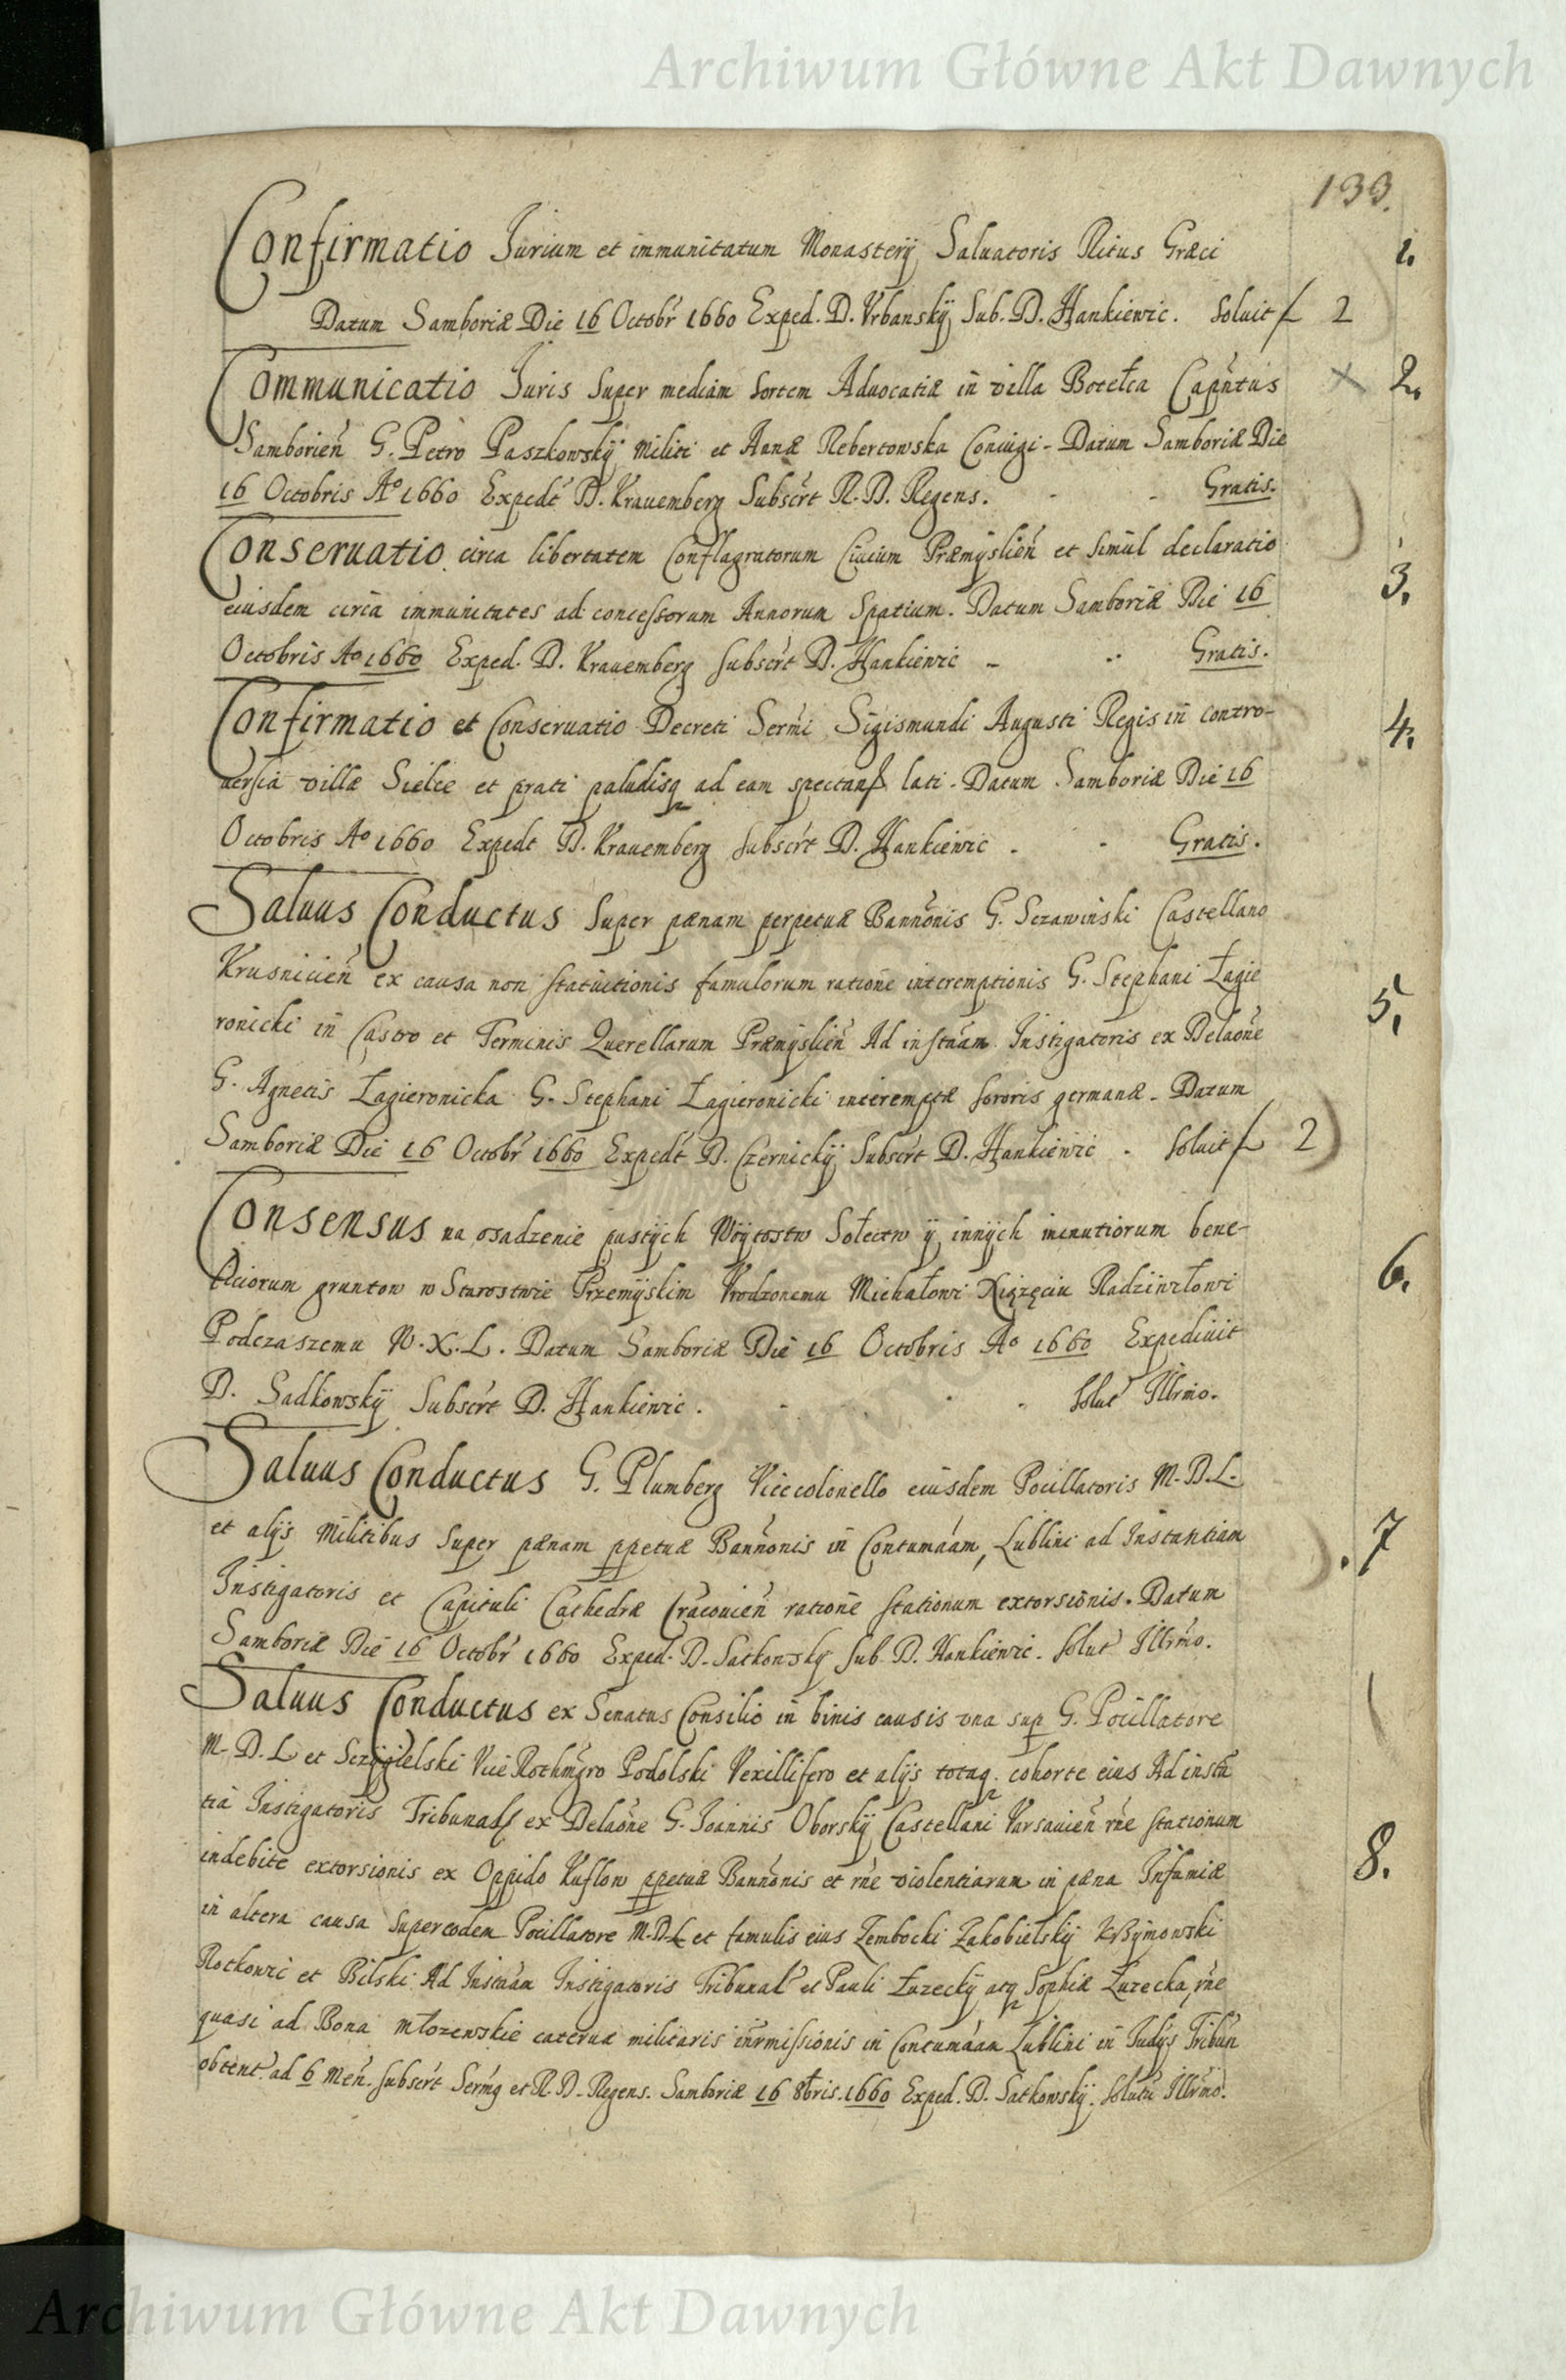 Archiwum Główne Akt Dawnych
133.
Confirmatio Jurium et immunitatum Monasterij Saluatoris Ritus Græci 1.
Datum Samboriæ Die 16 Octobr 1660 Exped. D. Vrbanskÿ Sub. D. Hankiewic. Soluit f 2
Communicatio Juris super mediam sortem Aduocatiæ in villa Botełca Capñtus × 2.
Samborień G. Petro Paszkowskÿ Militi et Annæ Rebertowska Coniugi - Datum Samboriæ Die
16 Octobris Aº 1660 Expedt D. Krauemberg Subscrt R. D. Regens. - - Gratis.
Conseruatio circa libertatem Conflagratorum Ciuium Præmÿslień et simul declaratio
eiusdem circa immunitates ad concessorum Annorum spatium. Datum Samboriæ Die 16 3.
Octobris Aº 1660 Exped. D. Krauemberg subscrt D. Hankiewic - - Gratis.
Confirmatio et Conseruatio Decreti Sermi Sigismundi Augusti Regis in contro- 4.
uersia villæ Sielce et prati paludisq ad eam spectan lati. Datum Samboriæ Die 16
Octobris Aº 1660 Expedt D. Krauemberg subscrt D. Hankiewic . - Gratis.
Saluus Conductus super pænam perpetuæ Bannonis G. Sczawinski Castellano
Krusnicień ex causa non statuitionis famulorum ratione interemptionis G. Stephani Łagie 5.
ronicki in Castro et Terminis Querellarum Præmÿslień Ad instnam Instigatoris ex Delaone
G. Agnetis Łagieronicka G. Stephani Łagieronicki interemptæ sororis germanæ. Datum
Samboriæ Die 16 Octobr 1660 Expedt D. Czernickÿ Subscrt D. Hankiewic . Soluit f 2
Consensus na osadzenie pustÿch Wóÿtostw Sołectw ÿ innÿch minutiorum bene-
ficiorum gruntow w Starostwie Przemÿskim Vrodzonemu Michałowi Xiążęciu Radziwiłowi 6.
Podczaszemu W. X. L. Datum Samboriæ Die 16 Octobris Aº 1660 Expediuit
D. Sadkowskÿ Subscrt D. Hankiewic . - - . Solut Illrmo.
Saluus Conductus G. Plumberg Vicecolonello eiusdem Pocillatoris M. D. L.
et alijs Militibus super pænam ppetuæ Bannonis in Contumaam, Lublini ad Instantiam 7
Instigatoris et Capituli Cathedræ Cracouień ratione stationum extorsionis. Datum
Samboriæ Die 16 Octobr 1660 Exped. D. Satkowskÿ Sub. D. Hankiewic. Solut Illrmo.
Saluus Conductus ex Senatus Consilio in binis causis vna sup G. Pocillatore
M. D. L et Sczÿgielski Vice Rothmgro Podolski Vexillifero et alijs totaq cohorte eius Ad insta
tia Instigatoris Tribunal ex Delaone G. Joannis Oborskÿ Castellani Varsauień rne stationum
indebite extorsionis ex Oppido Kuflow ppetuæ Bannonis et rne violentiarum in pæna Infamiæ 8.
in altera causa super eodem Pocillatore M. D. L et famulis eius Zembocki Zakobielskÿ
Rotkowic et Bilski Ad Instnam Instigatoris Tribunal et Pauli Łuzeckÿ atq Sophiæ Łuzecka, rne
quasi ad Bona Młozewskie cateruæ militaris inrmissionis in Contumaam Lublini in Judijs Tribun
obtent ad 6 Men. subscrt Sermg et R. D. Regens. Samboriæ 16 8bris. 1660 Exped. D. Satkowskÿ. Solutu Illrmo.
Archiwum Główne Akt Dawnych